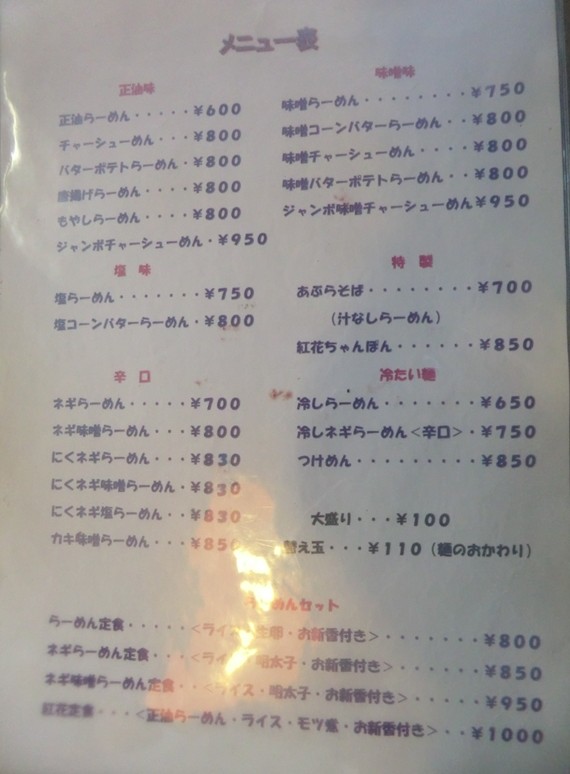 メニュー表
正油味
正油らーめん・・・・・¥600
チャーシューめん・・・¥800
バターポテトらーめん・・¥800
唐揚げらーめん・・・・¥800
もやしらーめん・・・・¥800
ジャンボチャーシューめん・¥950
塩 味
塩らーめん・・・・・・・¥750
塩コーンバターらーめん・¥800
辛 口
ネギらーめん・・・・・¥700
ネギ味噌らーめん・・・¥800
にくネギらーめん・・・¥830
にくネギ味噌らーめん・・¥830
にくネギ塩らーめん・・・¥830
カキ味噌らーめん・・・¥850
味噌味
味噌らーめん・・・・・・・・¥750
味噌コーンバターらーめん・・¥800
味噌チャーシューめん・・・・¥800
味噌バターポテトらーめん・・¥800
ジャンボ味噌チャーシューめん¥950
特 製
あぶらそば・・・・・・・・¥700
（汁なしらーめん）
紅花ちゃんぽん・・・・・・¥850
冷たい麺
冷しらーめん・・・・・・・¥650
冷しネギらーめん<辛口>・¥750
つけめん・・・・・・・・・¥850
大盛り・・・¥100
替え玉・・・¥110（麺のおかわり）
めんセット
らーめん定食・・・・・<ライス・生卵・お新香付き>・・・・・・・¥800
ネギらーめん定食・・・<ライス・明太子・お新香付き>・・・・・¥850
ネギ味噌らーめん定食・・<ライス・明太子・お新香付き>・・・・¥950
紅花定食・・・<正油らーめん・ライス・モツ煮・お新香付き>・・¥1000